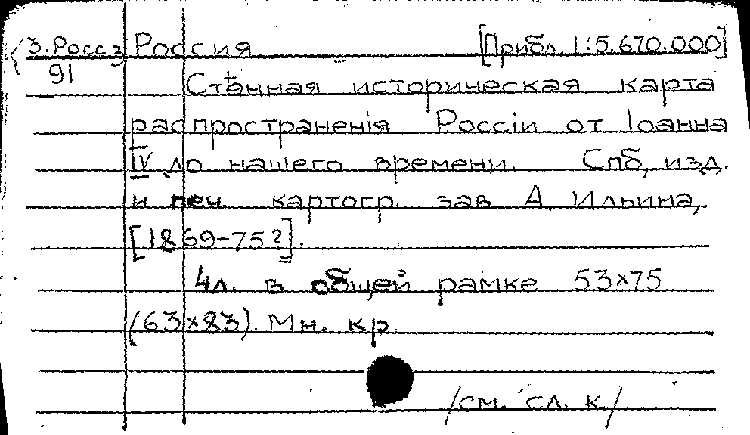 3.Росс3 Россия [Прибл. 1:5.670.000]
91
Стѣнная историческая карта
распространенія Россіи от Іоанна
IV до нашего времени. Спб, изд.
и печ. картогр. зав. А. Ильина,
[1869-75?].
4л. в общей рамке 53×75
(63×83). Мн. кр.
/см. сл. к/